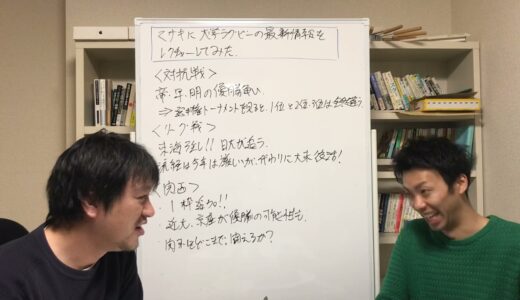 マサキに大学ラグビーの最新情報を
レクチャーしてみた.
<対抗戦>
帝・早・明の優勝争い
トーナメント 1位と2位.3位は
<リーグ戦>
東海強し!! 日大が追う.
流経は今年は厳しいが、代わりに大東復活!
<関西>
1枠追加!!
近大、京産が優勝の可能性も.
どこまで、闘えるか?